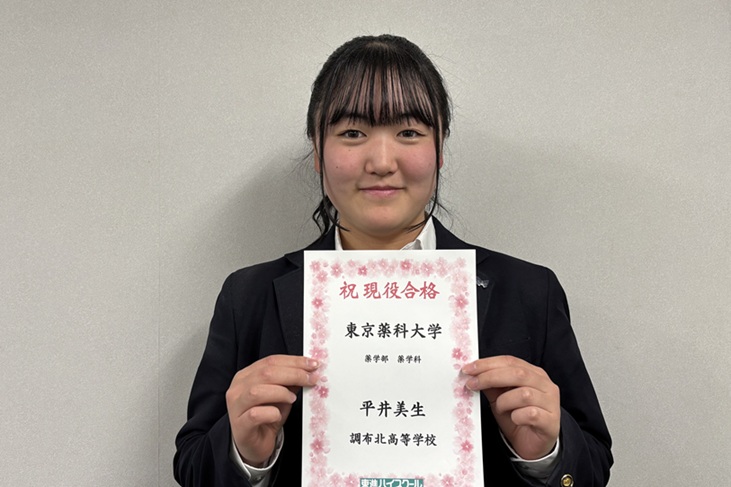 祝 現役合格
東京薬科大学
薬学部 薬学科
平井美生
調布北高等学校
東進ハイスクール